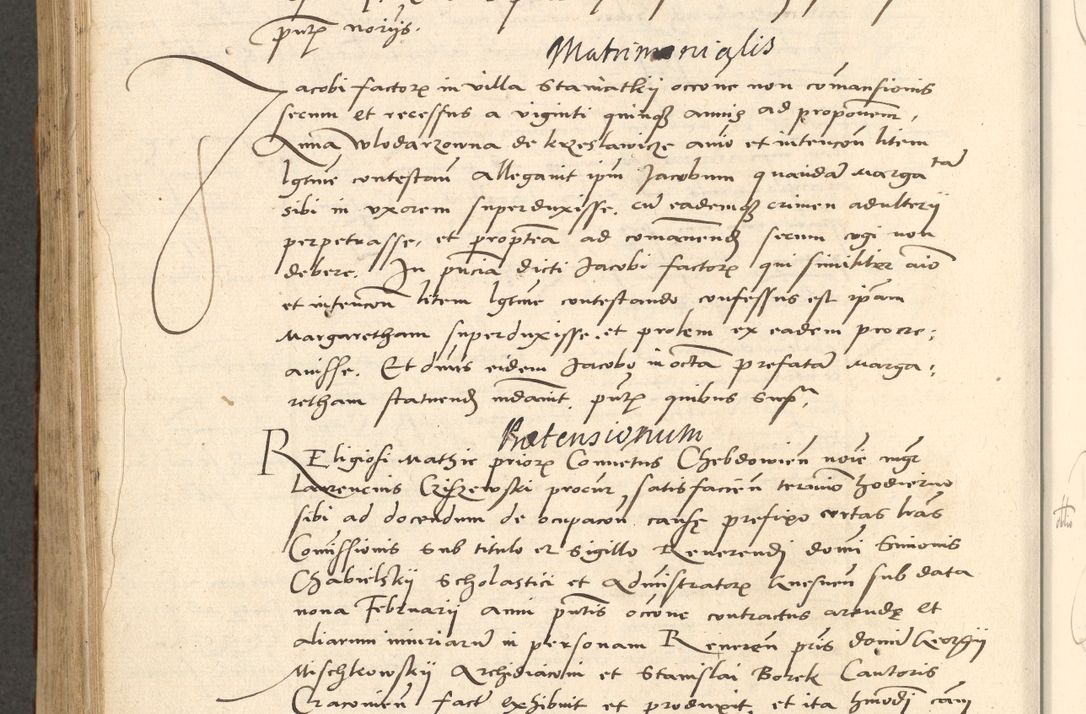 pntz noriis.
Matrimonialis
Jacobi factorz in villa Staniatkij occone non comansionis
secum et recessus a viginti quinqz annis ad proponenm,
Anna Wlodarzowna de Krzeslawicze animo et intencon litem
lgtme contestan allegavit ipm Jacobum quandam Marga tam
sibi in vxorem superduxisse, cu eademqz crimen adulterij
perpetrasse, et proptea ad comanendz secum cogi non
debere. In pncia dicti Jacobi factorz qui similiter aio
et intencon litem lgtme contestando confessus est ipam
Margaretham superduxisse et prolem ex eadem procre:
avisse. Et dnus eidem Jacobo in octa prefatam Marga:
retham statuendz mdavit, pntz quibus supra
Pretensionum
REligiosi Mathie priorz Conuetus Chebdowien noie mgr
Laurencius Czszewski procur, satisfacien termino hodierno
sibi ad docendum de ocupacon cause prefixo certas lras
Comissionis sub titulo et sigillo Reuerendj domi Simonis
Chabielskij Scholastici et Admistratorz Gnesnen sub data
nona Februarij anni pntis occone contractus arende et
aliarum iniuriarum in personam Reueren pris domini Georgij
Mischkowskij Archidiaconi et Stanislai Borek Cantoris
Cracouien fact exhibuit et produxit, et ita hmodi cam